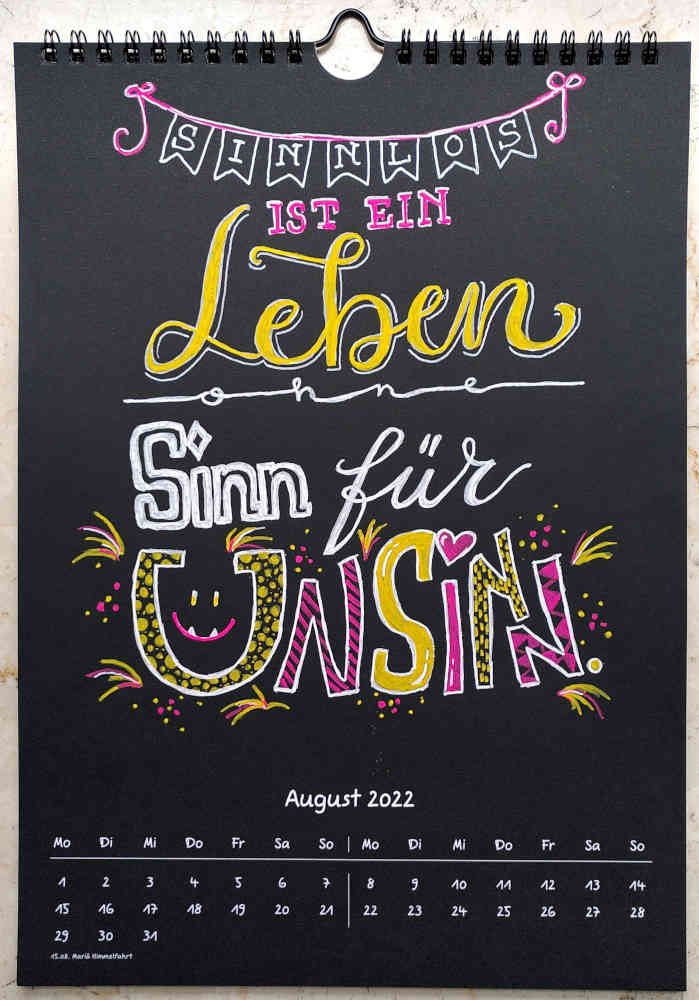 SINNLOS
IST EIN
Leben
ohne
Sinn für
UNSINN.
August 2022
Mo Di Mi Do Fr Sa So | Mo Di Mi Do Fr Sa So
1 2 3 4 5 6 7 8 9 10 11 12 13 14
15 16 17 18 19 20 21 22 23 24 25 26 27 28
29 30 31
15.08. Mariä Himmelfahrt